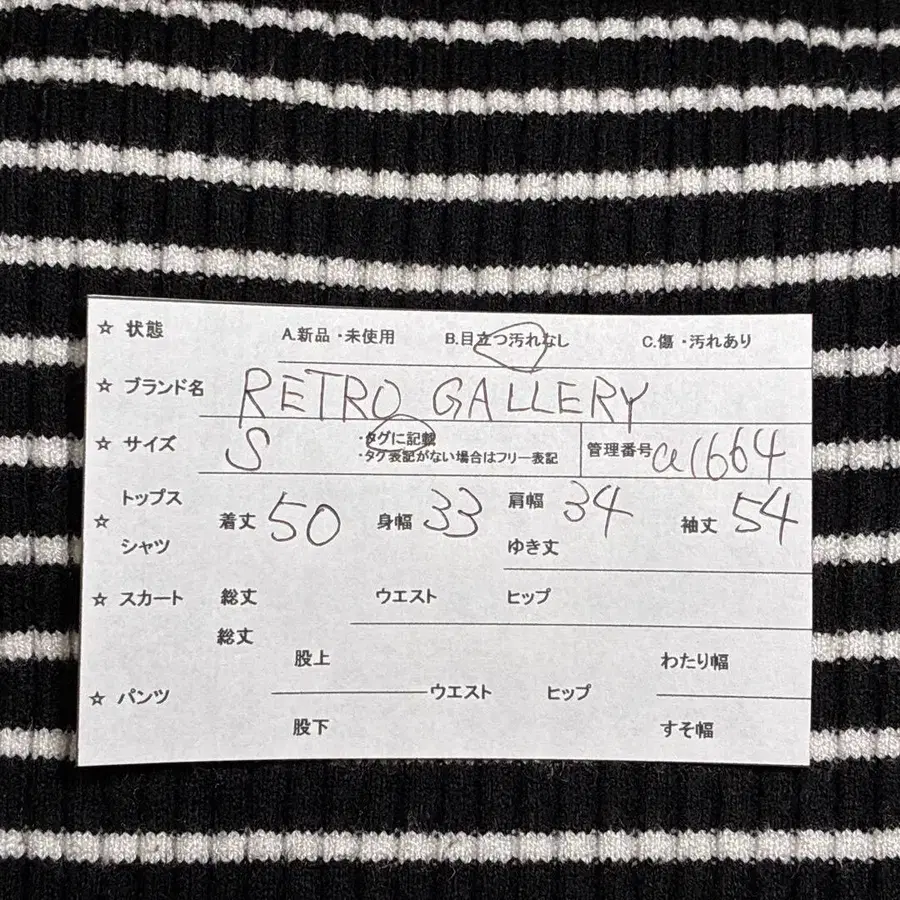 ☆ 状態 A.新品・未使用 B.目立つ汚れなし C.傷・汚れあり
☆ ブランド名 RETRO GALLERY
☆ サイズ S ・タグに記載
・タグ表記がない場合はフリー表記
管理番号 a1664
☆ トップス シャツ 着丈 50 身幅 33 肩幅 34 袖丈 54
ゆき丈
☆ スカート 総丈 ウエスト ヒップ
☆ パンツ 総丈 股上 ウエスト ヒップ わたり幅
股下 すそ幅